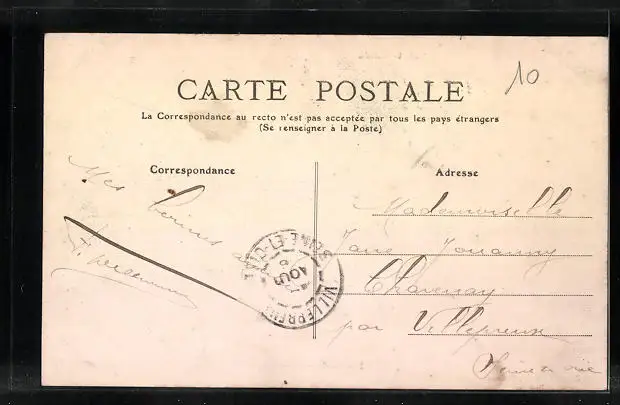 10
CARTE POSTALE
La Correspondance au recto n'est pas acceptée par tous les pays étrangers
(Se renseigner à la Poste)
Correspondance
Adresse
Mes
Mademoiselle
Jane Jouanny
Chavenay
par Villepreux
Seine et Oise
SEINE-ET-OISE
AOUT
VILLEPREUX